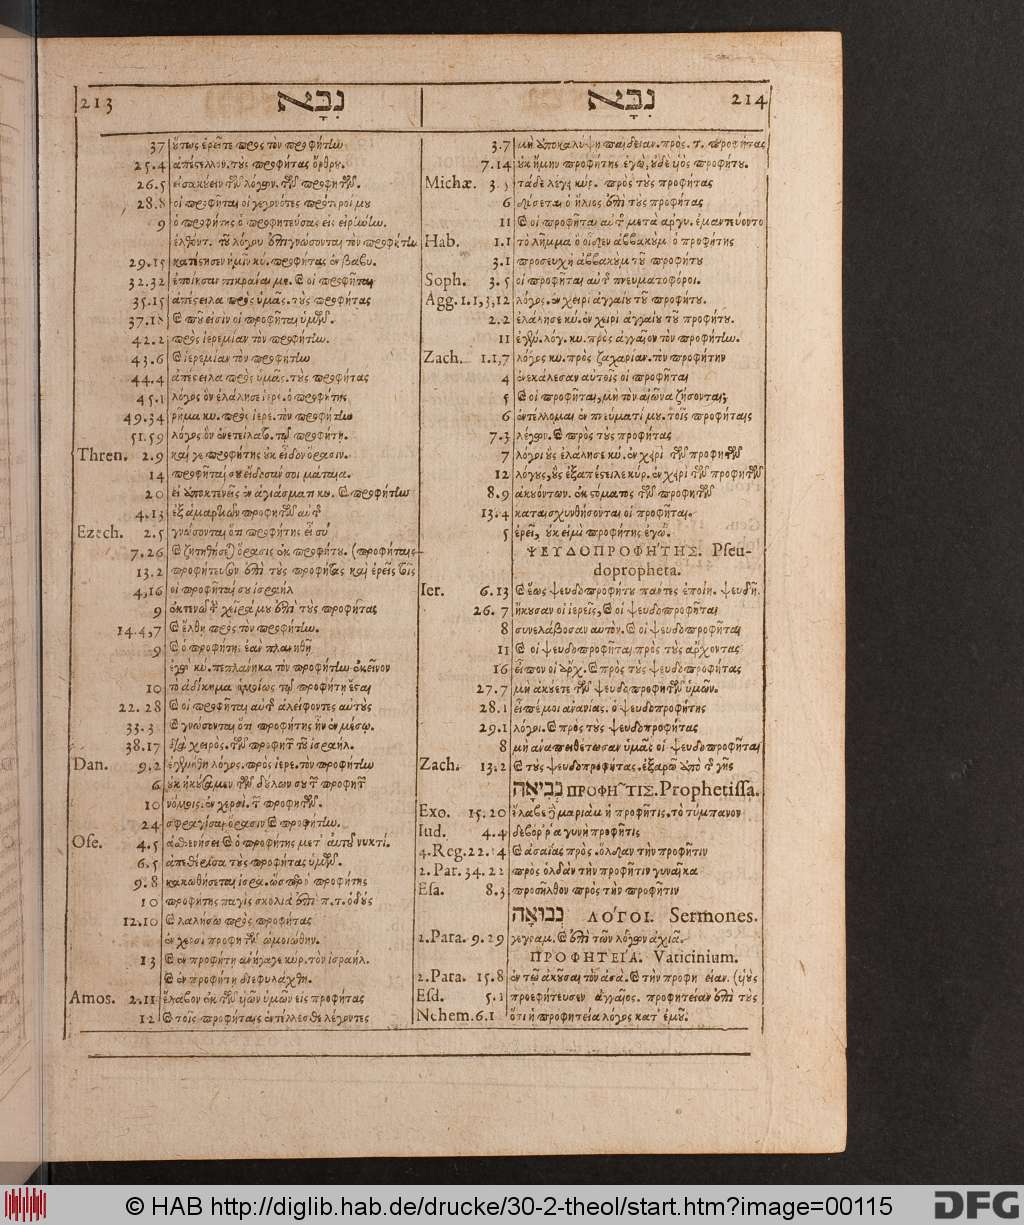 213 נִבָּא
37 οὕτως ἐρεῖτε πρὸς τὸν προφήτην
25.4 ἀπέστελλον. τοὺς προφήτας ὄρθρου.
26.5 εἰσακούειν τῶν λόγων. τῶν προφητῶν.
28.8 οἱ προφῆται οἱ γεγονότες πρότεροί μου
9 ὁ προφήτης ὁ προφητεύσας εἰς εἰρήνην.
ἐλθόντ. τοῦ λόγου ἐπιγνώσονται τὸν προφήτην
29.15 κατέστησεν ἡμῖν κύ. προφήτας ἐν βαβυ.
32.32 ἐποίησαν πικρᾶναί με. καὶ οἱ προφῆται
35.15 ἀπέστειλα πρὸς ὑμᾶς. τοὺς προφήτας
37.18 καὶ ποῦ εἰσιν οἱ προφῆται ὑμῶν.
42.2 πρὸς ἱερεμίαν τὸν προφήτην.
43.6 καὶ ἱερεμίαν τὸν προφήτην
44.4 ἀπέστειλα πρὸς ὑμᾶς. τοὺς προφήτας
45.1 λόγος ὃν ἐλάλησε ἱερε. ὁ προφήτης
49.34 ῥῆμα κυ. πρὸς ἱερε. τὸν προφήτην
51.59 λόγος ὃν ἐνετείλατο. τῷ προφήτῃ.
Thren. 2.9 καί γε προφήτης οὐκ εἶδον ὅρασιν.
14 προφῆταί σου εἴδοσάν σοι μάταια.
20 εἰ ἀποκτενεῖς ἐν ἁγιάσματι κυ. καὶ προφήτην
4.13 ἐξ ἁμαρτιῶν προφητῶν αὐτῆς
Ezech. 2.5 γνώσονται ὅτι προφήτης εἶ σύ
7.26 καὶ ζητηθήσεται ὅρασις ἐκ προφήτου. (προφήταις
13.2 προφήτευσον ἐπὶ τοὺς προφήτας καὶ ἐρεῖς τοῖς
4,16 οἱ προφῆταί σου ἰσραὴλ
9 ἐκτενῶ τὴν χεῖρά μου ἐπὶ τοὺς προφήτας
14.4,7 καὶ ἔλθῃ πρὸς τὸν προφήτην.
9 καὶ ὁ προφήτης ἐὰν πλανηθῇ
ἐγὼ κύ. πεπλάνηκα τὸν προφήτην ἐκεῖνον
10 τὸ ἀδίκημα ὁμοίως τῷ προφήτῃ ἔσται
22.28 καὶ οἱ προφῆται αὐτῆς ἀλείφοντες αὐτοὺς
33.3 καὶ γνώσονται ὅτι προφήτης ἦν ἐν μέσῳ.
38.17 διὰ χειρὸς. τῶν προφητῶν τοῦ ἰσραήλ.
Dan. 9.2 ἐγενήθη λόγος. πρὸς ἱερε. τὸν προφήτην
6 οὐκ ἠκούσαμεν τῶν δούλων σου τῶν προφητῶν
10 νόμοις. ἐν χερσὶ. τῶν προφητῶν.
24 σφραγίσαι ὅρασιν καὶ προφήτην.
Ose. 4.5 ἀσθενήσει καὶ ὁ προφήτης μετ' αὐτοῦ νυκτί.
6.5 ἀπεθέρισα τοὺς προφήτας ὑμῶν.
9.8 κακωθήσεται ἰσρα. ὥσπερ ὁ προφήτης
10 προφήτης παγὶς σκολιὰ ἐπὶ π.τ. ὁδοὺς
12.10 καὶ λαλήσω πρὸς προφήτας
ἐν χερσὶ προφητῶν ὡμοιώθην.
13 καὶ ἐν προφήτῃ ἀνήγαγε κύρ. τὸν ἰσραήλ.
καὶ ἐν προφήτῃ διεφυλάχθη.
Amos. 2.11 ἔλαβον ἐκ τῶν υἱῶν ὑμῶν εἰς προφήτας
12 καὶ τοῖς προφήταις ἐντέλλεσθε λέγοντες
נִבָּא 214
3.7 μὴ ἀποκαλύψῃ παιδείαν. πρὸς. τ. προφήτας
7.14 οὐκ ἤμην προφήτης ἐγὼ, οὐδὲ υἱὸς προφήτου.
Michæ. 3.5 τάδε λέγει κύρ. πρὸς τοὺς προφήτας
6 δύσεται ὁ ἥλιος ἐπὶ τοὺς προφήτας
11 καὶ οἱ προφῆται αὐτῆς μετὰ ἀργυ. ἐμαντεύοντο
Hab. 1.1 τὸ λῆμμα ὃ εἶδεν ἀββακοὺμ ὁ προφήτης
3.1 προσευχὴ ἀββακοὺμ τοῦ προφήτου
Soph. 3.5 οἱ προφῆται αὐτῆς πνευματοφόροι.
Agg. 1.1,3,12 λόγος. ἐν χειρὶ ἀγγαίου τοῦ προφήτου.
2.2 ἐλάλησε κύ. ἐν χειρὶ ἀγγαίου τοῦ προφήτου.
11 ἐγένετο. λόγ. κυ. πρὸς ἀγγαῖον τὸν προφήτην.
Zach. 1.1,7 λόγος κυ. πρὸς ζαχαρίαν. τὸν προφήτην
4 ἐνεκάλεσαν αὐτοῖς οἱ προφῆται
5 καὶ οἱ προφῆται, μὴ τὸν αἰῶνα ζήσονται;
6 ἐντέλλομαι ἐν πνεύματί μου. τοῖς προφήταις
7.3 λέγων. καὶ πρὸς τοὺς προφήτας
7 λόγοι οὓς ἐλάλησε κύ. ἐν χερσὶ τῶν προφητῶν
12 λόγους, οὓς ἐξαπέστειλε κύρ. ἐν χερσὶ τῶν προφητῶν
8.9 ἀκουόντων. ἐκ στόματος τῶν προφητῶν
13.4 καταισχυνθήσονται οἱ προφῆται.
5 ἐρεῖ, οὐκ εἰμὶ προφήτης ἐγώ.
ΨΕΥΔΟΠΡΟΦΉΤΗΣ. Pseu-
dopropheta.
Ier. 6.13 καὶ ἕως ψευδοπροφήτου πάντες ἐποίη. ψευδῆ.
26.7 ἤκουσαν οἱ ἱερεῖς, καὶ οἱ ψευδοπροφῆται
8 συνελάβοσαν αὐτὸν. καὶ οἱ ψευδοπροφῆται
11 καὶ οἱ ψευδοπροφῆται πρὸς τοὺς ἄρχοντας
16 εἶπον οἱ ἄρχ. καὶ πρὸς τοὺς ψευδοπροφήτας
27.7 μὴ ἀκούετε τῶν ψευδοπροφητῶν ὑμῶν.
28.1 εἶπέ μοι ἀνανίας. ὁ ψευδοπροφήτης
29.1 λόγοι. καὶ πρὸς τοὺς ψευδοπροφήτας
8 μὴ ἀναπειθέτωσαν ὑμᾶς οἱ ψευδοπροφῆται
Zach. 13.2 καὶ τοὺς ψευδοπροφήτας. ἐξαρῶ ἀπὸ τῆς γῆς
נְבִיאָה ΠΡΟΦΗ͂ΤΙΣ. Prophetissa.
Exo. 15.20 ἔλαβε δὲ μαριὰμ ἡ προφῆτις. τὸ τύμπανον
Iud. 4.4 δεβόρρα γυνὴ προφῆτις
4. Reg. 22.14 καὶ ἀσαΐας πρὸς. ὄλδαν τὴν προφῆτιν
2. Par. 34.22 πρὸς ὀλδὰν τὴν προφῆτιν γυναῖκα
Esa. 8.3 προσῆλθον πρὸς τὴν προφῆτιν
נְבוּאָה ΛΌΓΟΙ. Sermones.
2. Para. 9.29 γεγραμ. καὶ ἐπὶ τῶν λόγων ἀχιὰ.
ΠΡΟΦΗΤΕΊΑ. Vaticinium.
2. Para. 15.8 ἐν τῷ ἀκοῦσαι τὸν ἀσὰ. καὶ τὴν προφητείαν. (υἱοὺς
Esd. 5.1 προεφήτευσεν ἀγγαῖος. προφητείαν ἐπὶ τοὺς
Nehem. 6.1 ὅτι ἡ προφητεία λόγος κατ' ἐμοῦ.
© HAB http://diglib.hab.de/drucke/30-2-theol/start.htm?image=00115 DFG